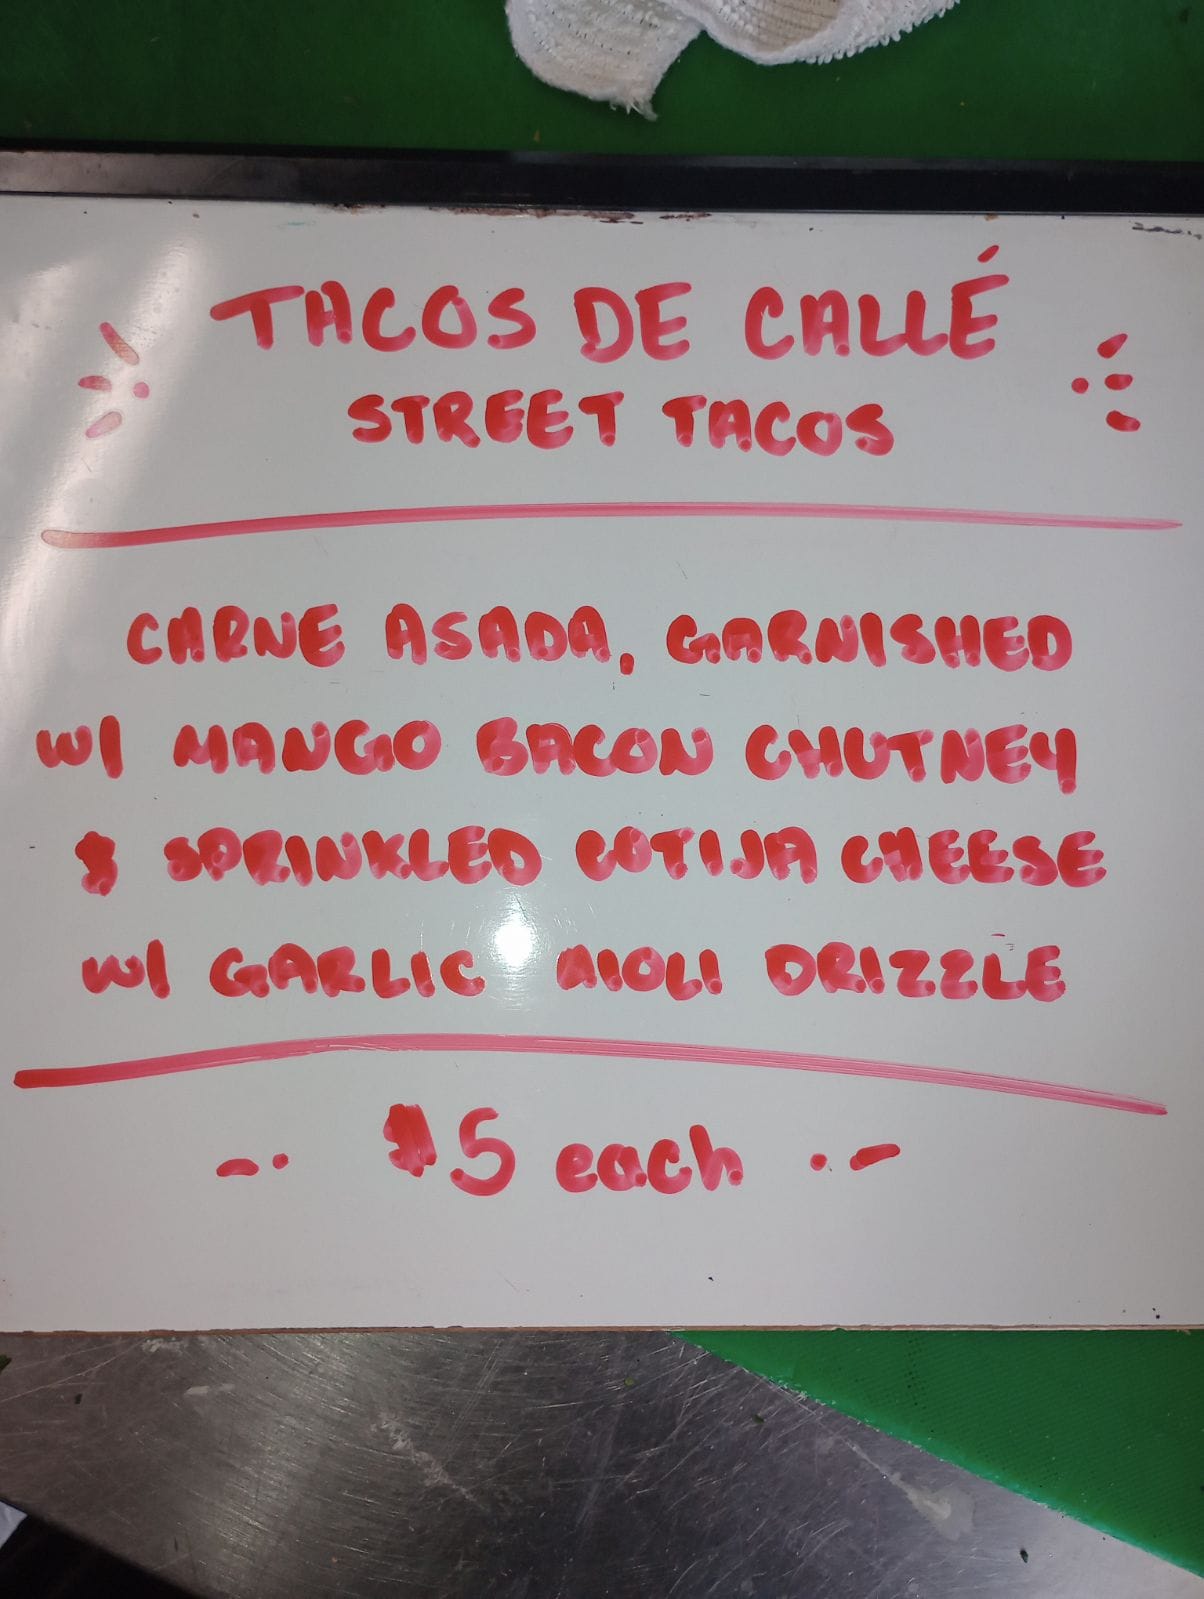 TACOS DE CALLÉ
STREET TACOS
CARNE ASADA, GARNISHED
w/ MANGO BACON CHUTNEY
& SPRINKLED COTIJA CHEESE
w/ GARLIC AIOLI DRIZZLE
$5 each